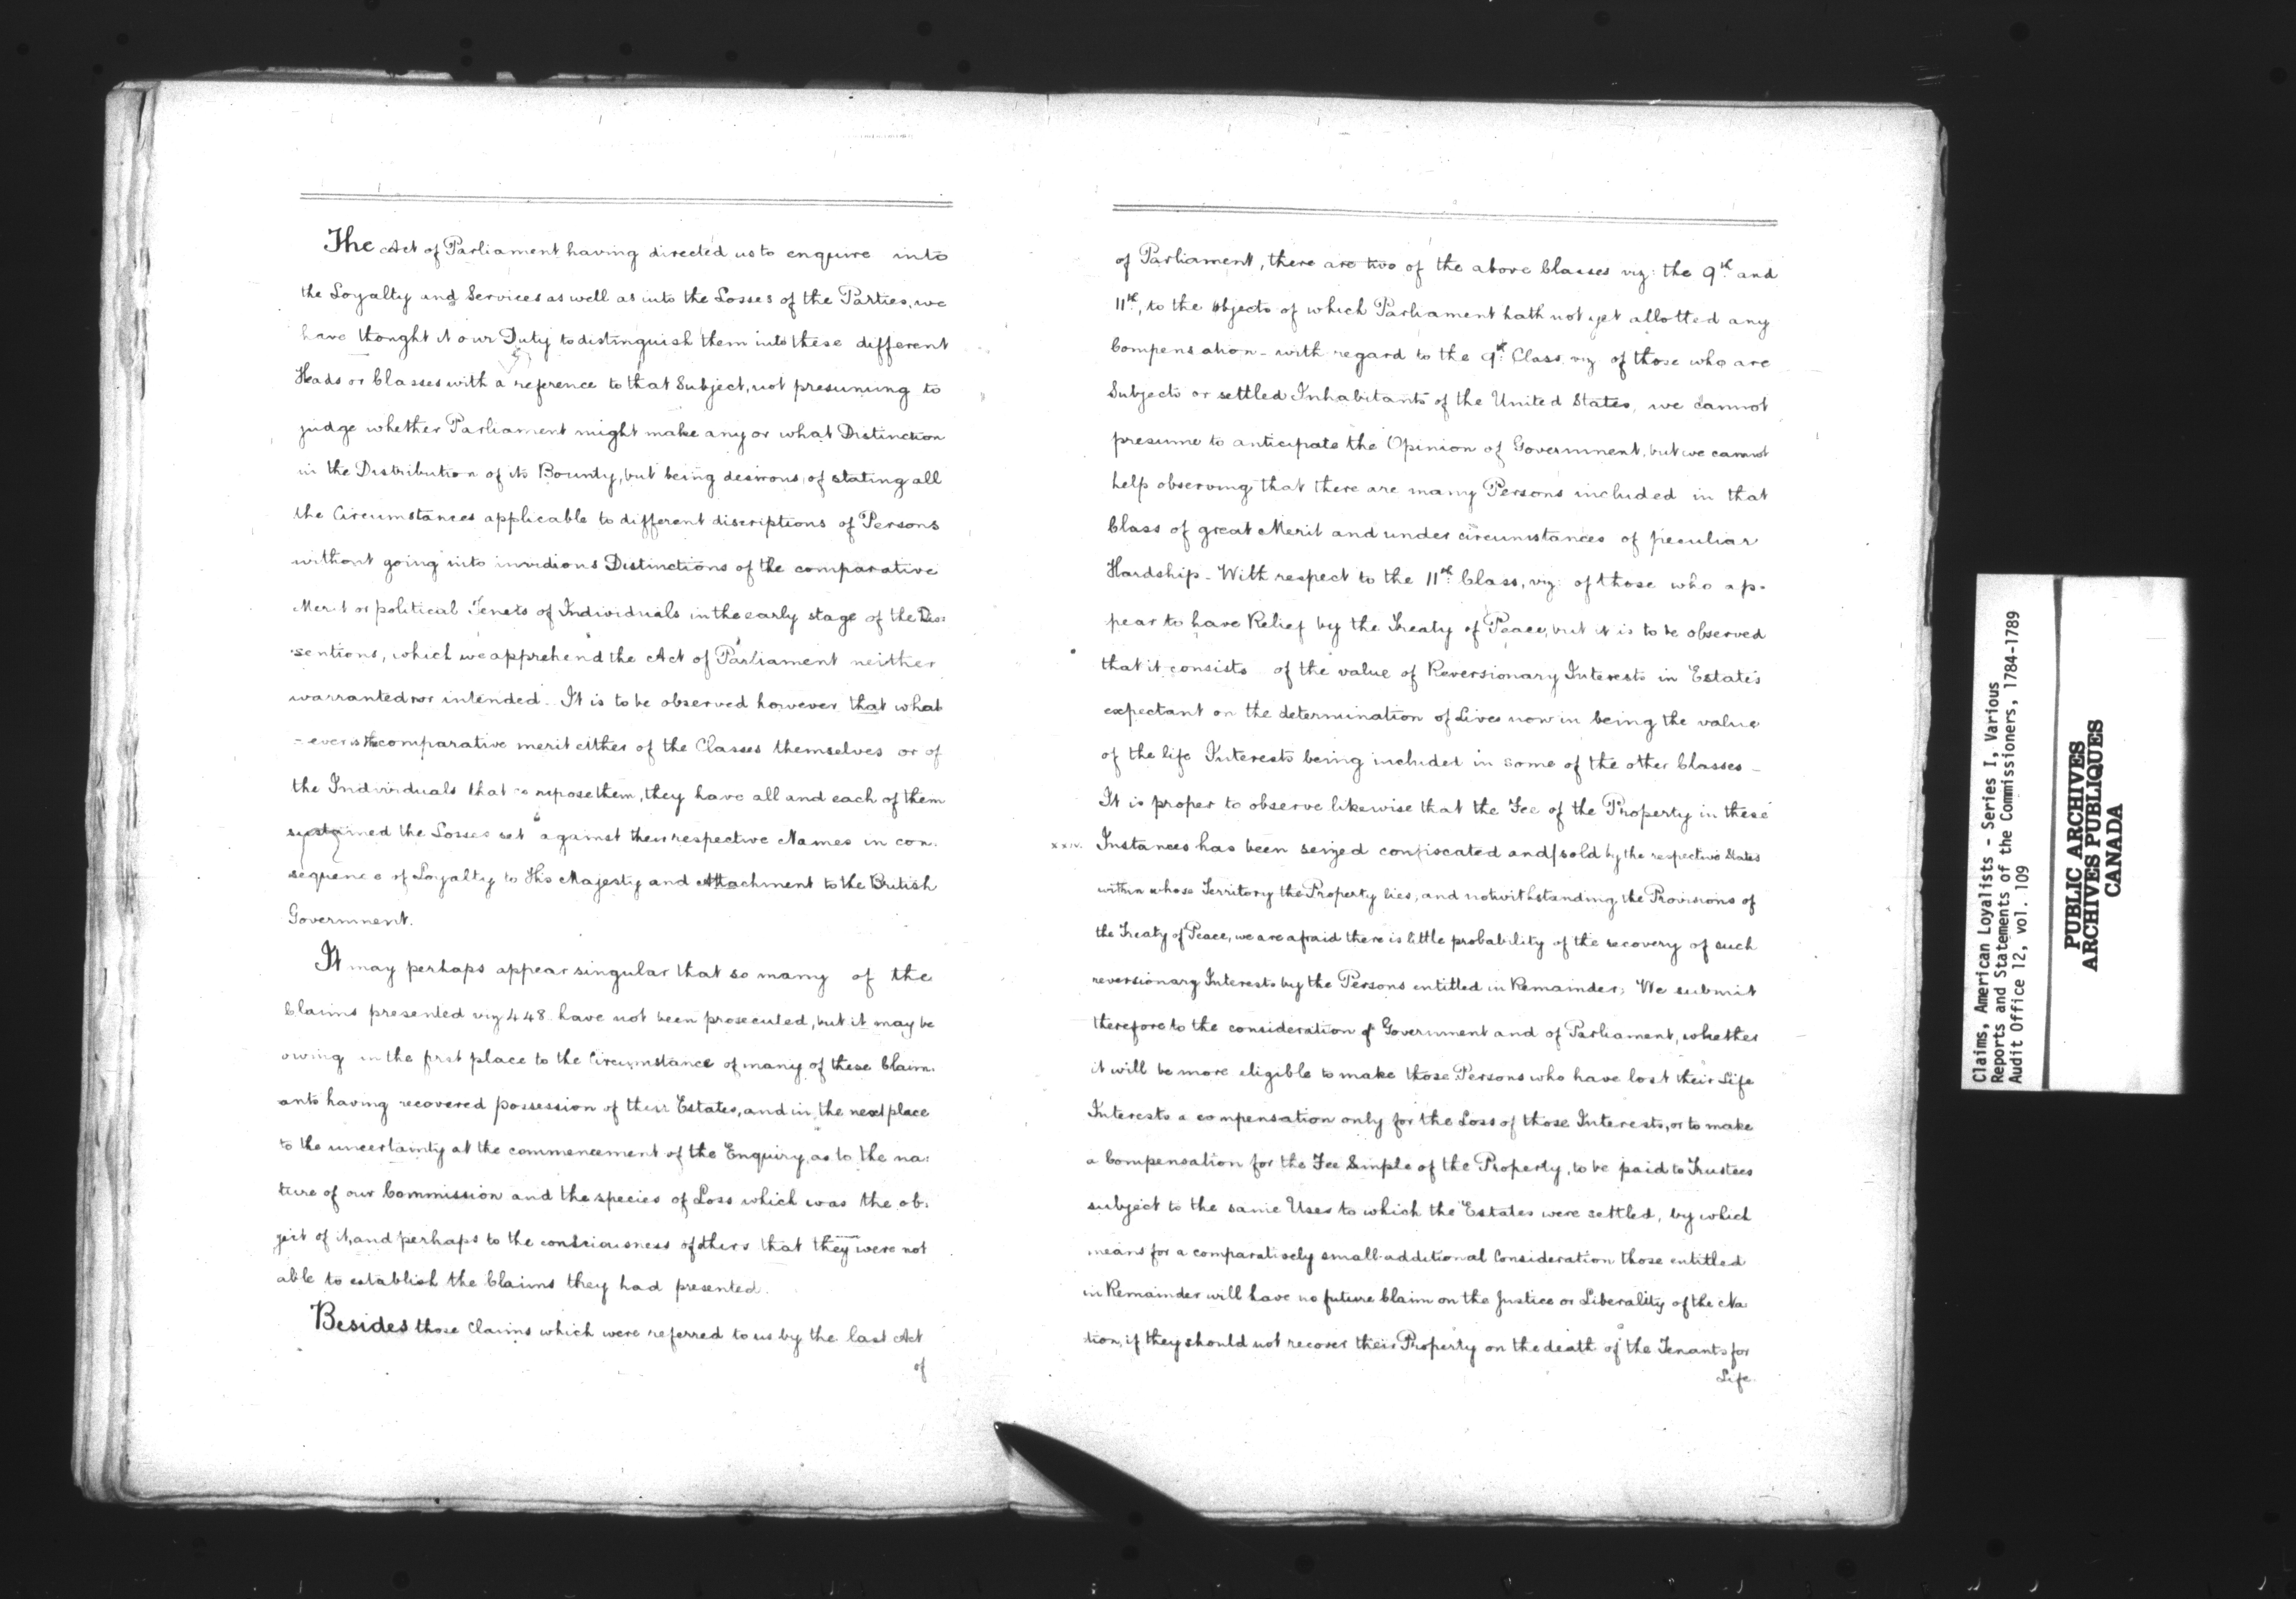 The Act of Parliament having directed us to enquire into
the Loyalty and Services as well as into the Losses of the Parties, we
have thought it our Duty to distinguish them into these different
Heads or Classes with a reference to that Subject, not presuming to
judge whether Parliament might make any or what Distinction
in the Distribution of its Bounty, but being desirous of stating all
the Circumstances applicable to different discriptions of Persons
without going into invidious Distinctions of the comparative
Merit or political Tenets of Individuals in the early stage of the Dis:
sentions, which we apprehend the Act of Parliament neither
warranted nor intended. It is to be observed however that what
-ever is the comparative merit either of the Classes themselves or of
the Individuals that repose them, they have all and each of them
sustained the Losses set against their respective Names in con.
sequence of Loyalty to His Majesty and Attachment to the British
Government.
It may perhaps appear singular that so many of the
Claims presented viz 448 have not been prosecuted, but it may be
owing in the first place to the Circumstance of many of these Claim.
ants having recovered possession of their Estates, and in the next place
to the uncertainty at the commencement of the Enquiry, as to the na:
ture of our Commission and the species of Loss which was the ob.
ject of it, and perhaps to the consciousness of others that they were not
able to establish the Claims they had presented.
Besides those Claims which were referred to us by the last Act
of
of Parliament, there are two of the above Classes viz: the 9th and
11th, to the objects of which Parliament hath not yet allotted any
Compensation - with regard to the 9th Class viz of those who are
Subjects or settled Inhabitants of the United States, we cannot
presume to anticipate the Opinion of Government, but we cannot
help observing that there are many Persons included in that
Class of great Merit and under circumstances of peculiar
Hardship - With respect to the 11th Class, viz: of those who ap-
pear to have Relief by the Treaty of Peace, but it is to be observed
that it consists of the value of Reversionary Interests in Estates
expectant on the determination of Lives now in being the value
of the life Interests being included in some of the other Classes -
It is proper to observe likewise that the Fee of the Property in these
xxiv. Instances has been seized confiscated and sold by the respective States
within whose Territory the Property lies, and notwithstanding the Provisions of
the Treaty of Peace, we are afraid there is little probability of the recovery of such
reversionary Interests by the Persons entitled in Remainder; We submit
therefore to the consideration of Government and of Parliament, whether
it will be more eligible to make those Persons who have lost their Life
Interests a compensation only for the Loss of those Interests, or to make
a Compensation for the Fee Simple of the Property, to be paid to Trustees
subject to the same Uses to which the Estates were settled, by which
means for a comparatively small additional Consideration those entitled
in Remainder will have no future Claim on the Justice or Liberality of the Na
tion, if they should not recover their Property on the death of the Tenants for
Life.
Claims, American Loyalists - Series I, Various
Reports and Statements of the Commissioners, 1784-1789
Audit Office 12, vol. 109
PUBLIC ARCHIVES
ARCHIVES PUBLIQUES
CANADA